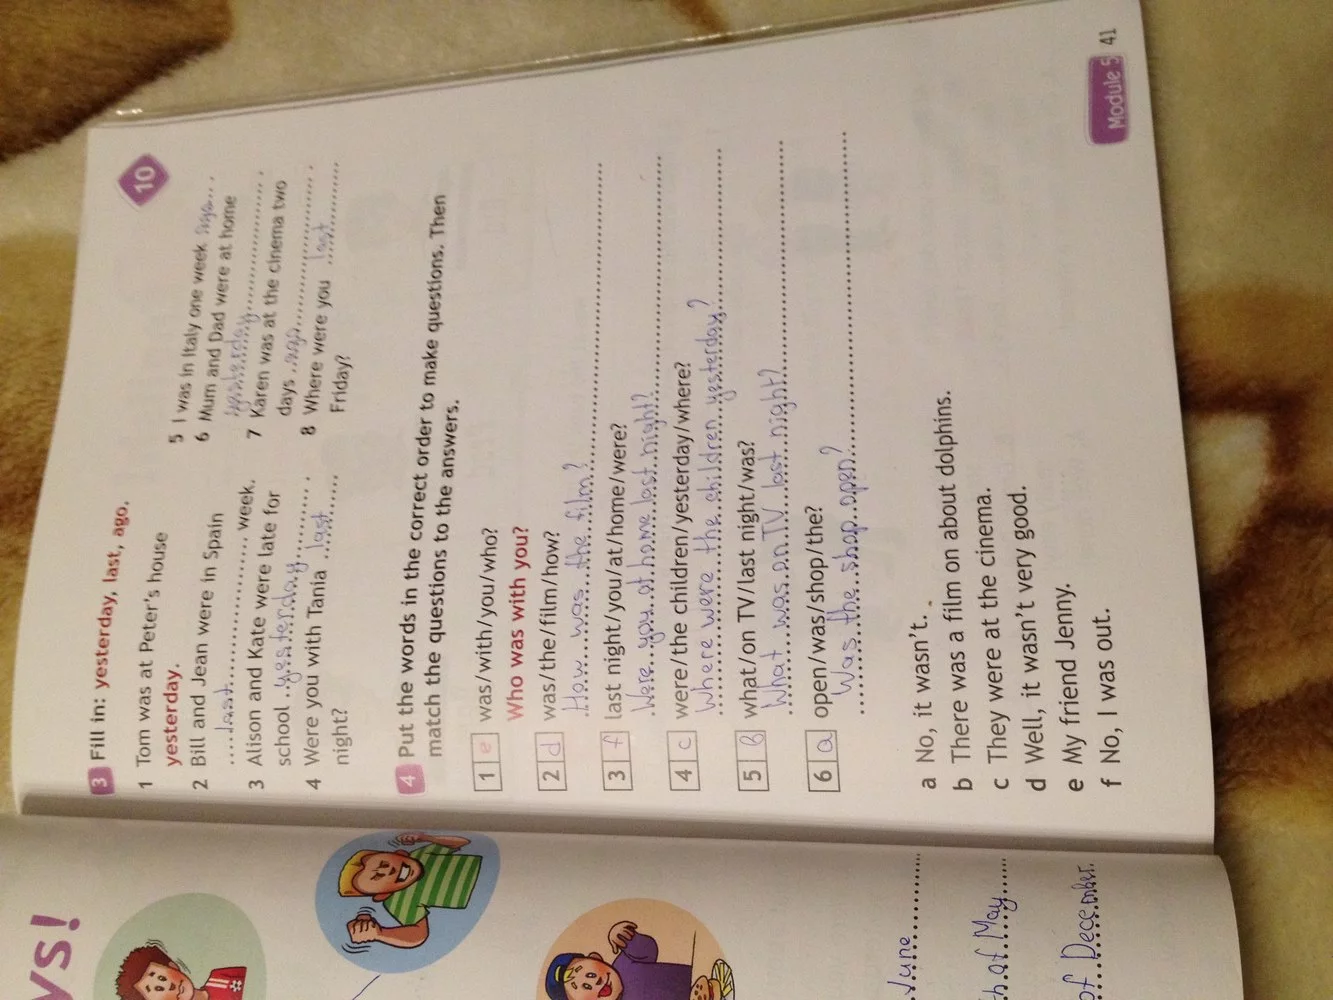 ys!
June
h of May
of December.
10
3 Fill in: yesterday, last, ago.
1 Tom was at Peter's house
yesterday.
2 Bill and Jean were in Spain
last week.
3 Alison and Kate were late for
school yesterday
4 Were you with Tania last
night?
5 I was in Italy one week ago
6 Mum and Dad were at home
yesterday
7 Karen was at the cinema two
days ago
8 Where were you last
Friday?
4 Put the words in the correct order to make questions. Then
match the questions to the answers.
1 e was/with/you/who?
Who was with you?
2 d was/the/film/how?
How was the film?
3 f last night/you/at/home/were?
Were you at home last night?
4 c were/the children/yesterday/where?
Where were the children yesterday?
5 b what/on TV/last night/was?
What was on TV last night?
6 a open/was/shop/the?
Was the shop open?
a No, it wasn't.
b There was a film on about dolphins.
c They were at the cinema.
d Well, it wasn't very good.
e My friend Jenny.
f No, I was out.
Module 5 41